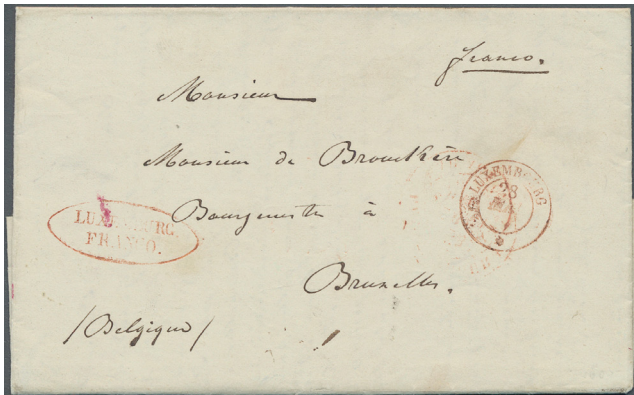 franco.
Monsieur
Monsieur de Brouckère
Bourgmestre à
Bruxelles.
/Belgique/
LUXEMBOURG.
FRANCO.
LUXEMBOURG
28